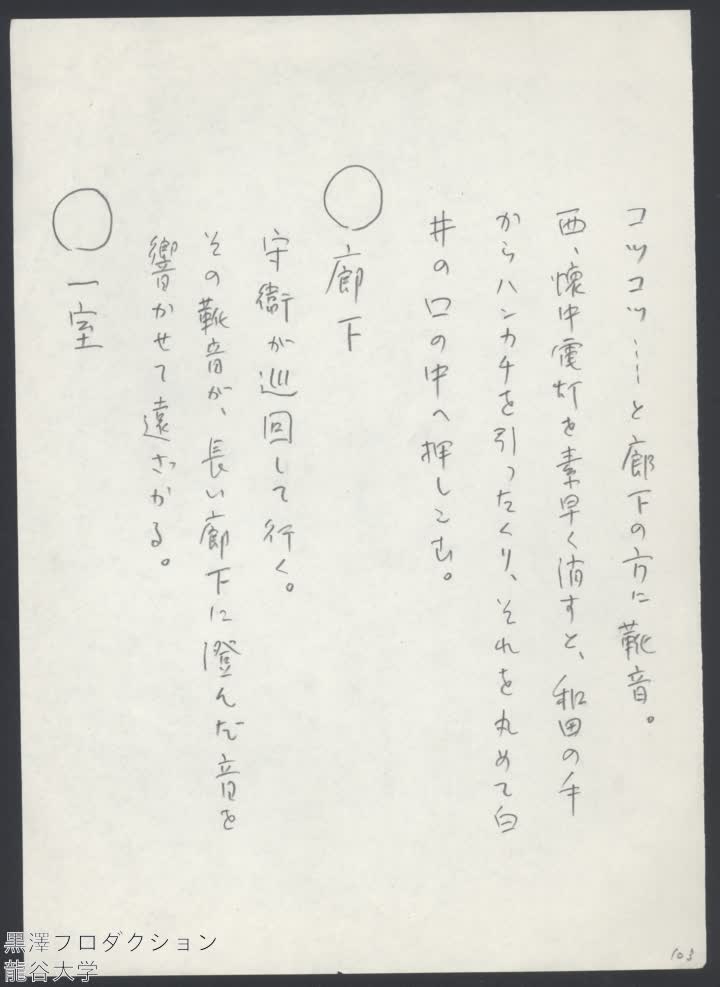 コツコツ……と廊下の方に靴音。
西、懐中電灯を素早く消すと、和田の手
からハンカチを引ったくり、それを丸めて白
井の口の中へ押しこむ。
◯廊下
守衛が巡回して行く。
その靴音が、長い廊下に澄んだ音を
響かせて遠ざかる。
◯一室
103
黒澤プロダクション
龍谷大学